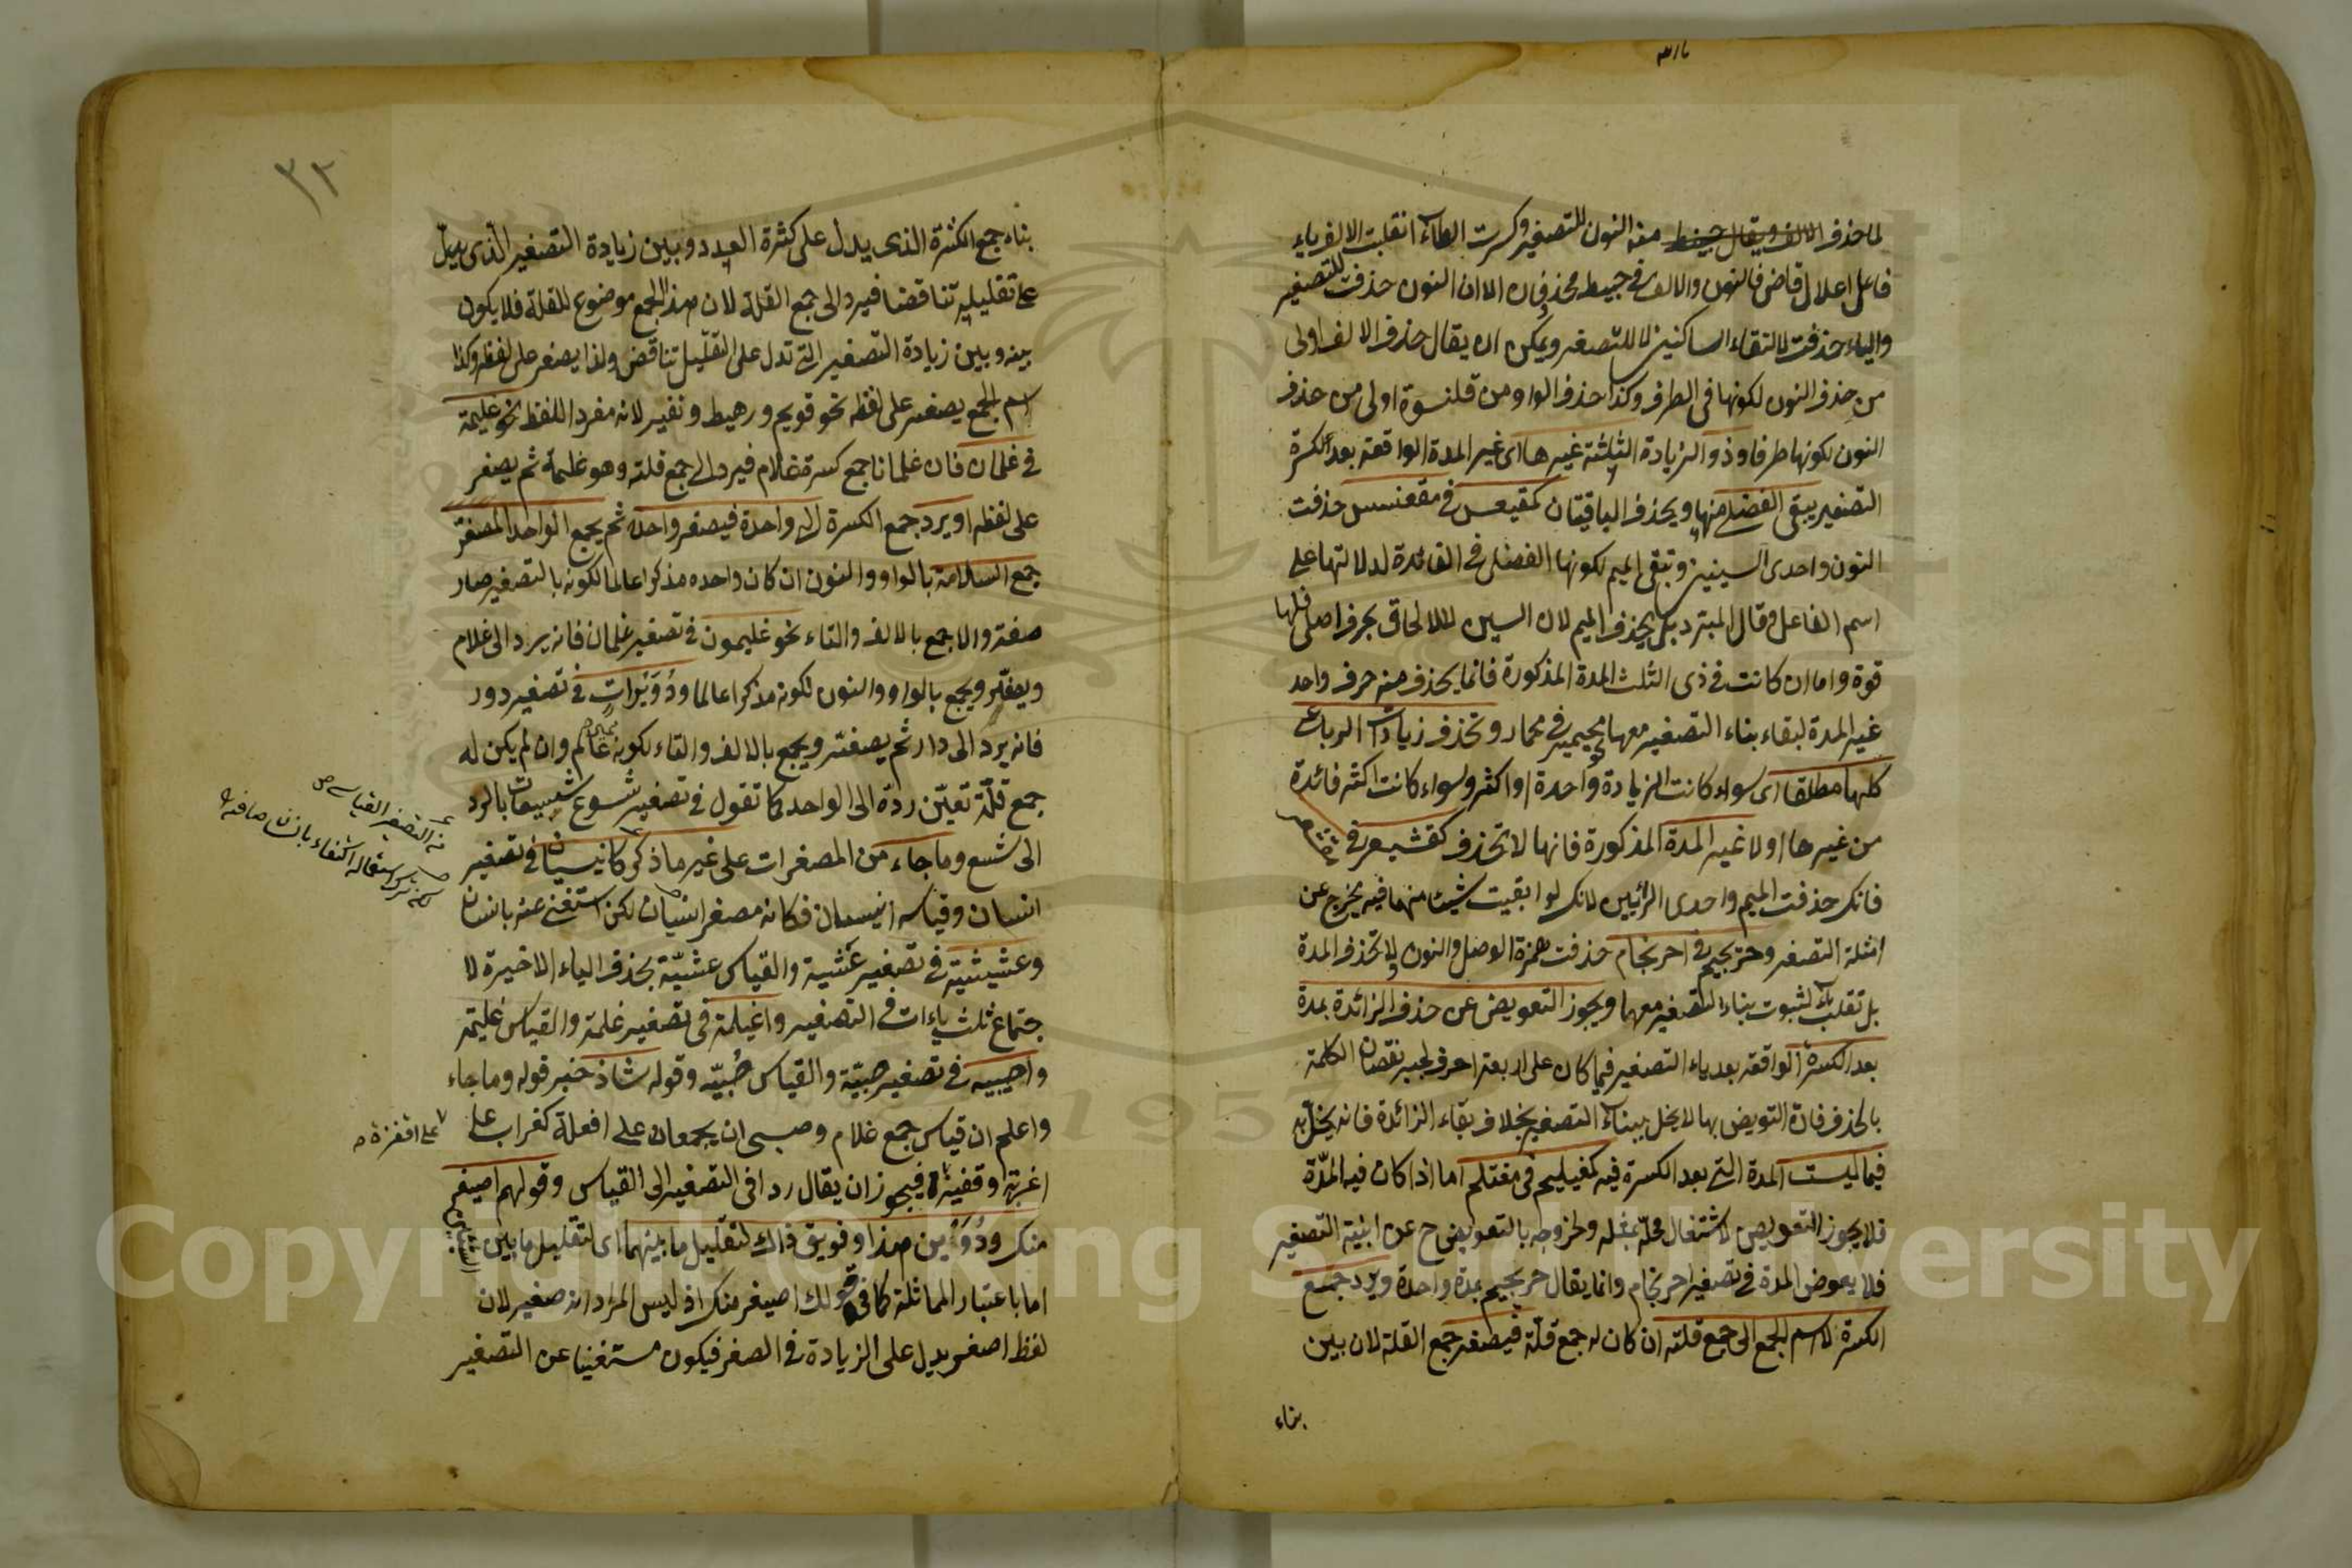 لما حذف الالف ويقال حبيط منه النون للتصغير وكسرت الطاء انقلبت الالف ياء
فاعل اعلال قاض فالنون والالف في حبيط محذوفان الا ان النون حذفت للتصغير
والياء حذفت لالتقاء الساكنين لا للتصغير ويمكن ان يقال حذف الالف اولى
من حذف النون لكونها في الطرف وكذا حذف الواو من قلنسوة اولى من حذف
النون لكونها طرفا وذو الزيادة الثلثة غيرها اى غير المدة الواقعة بعد الكسرة
التصغير يبقى الفضلى منها ويحذف الباقيتان كمقيعس في مقعنسس حذفت
النون واحدى السينين وتبقى الميم لكونها الفضلى في الفائدة لدلالتها على
اسم الفاعل وقال المبرد بل يحذف الميم لان السين للالحاق بحرف اصلى فلها
قوة واما ان كانت في ذى الثلث المدة المذكورة فانما يحذف منه حرف واحد
غير المدة لبقاء بناء التصغير معها كحيمير في محمار وتحذف زيادات الرباعى
كلها مطلقا اى سواء كانت الزيادة واحدة او اكثر وسواء كانت اكثر فائدة
من غيرها او لا غير المدة المذكورة فانها لا تحذف كقشيعر في
فانك حذفت الميم واحدى الرائين لانك لو ابقيت شيئا منهما فيه يخرج عن
امثلة التصغير وحريجيم في احرنجام حذفت همزة الوصل والنون ولا تحذف المدة
بل تقلب ياء لثبوت بناء التصغير معها ويجوز التعويض عن حذف الزائدة بمدة
بعد الكسرة الواقعة بعد ياء التصغير فيما كان على اربعة احرف لجبر نقصان الكلمة
بالحذف فان التعويض بها لا يخل ببناء التصغير بخلاف بقاء الزائدة فانه يخل به
فيما ليست المدة التى بعد الكسرة فيه كمغيليم في مغتلم اما اذا كان فيه المدّة
فلا يجوز التعويض لاشتغال محلّه بمثله ولخروجه بالتعويض ح عن ابنية التصغير
فلا يعوض المدة في تصغير احرنجام وانما يقال حريجيم بمدة واحدة ويرد جمع
الكثرة لا اسم الجمع الى جمع قلته ان كان له جمع قلّة فيصغر جمع القلة لان بين
بناء
٣٢
بناء جمع الكثرة الذى يدل على كثرة العدد وبين زيادة التصغير الذى يدل
على تقليله تناقضا فيرد الى جمع القلة لان هذا الجمع موضوع للقلة فلا يكون
بينه وبين زيادة التصغير التى تدل على التقليل تناقض ولذا يصغر على لفظه وكذا
اسم الجمع يصغر على لفظه نحو قويم ورهيط ونفير لانه مفرد اللفظ نحو غليمة
في غلمان فان غلمانا جمع كسرة غلام فيرد الى جمع قلته وهو غلمة ثم يصغر
على لفظه او يرد جمع الكسرة الى واحدة فيصغر واحده ثم يجمع الواحد المصغر
جمع السلامة بالواو والنون ان كان واحده مذكرا عالما لكونه بالتصغير صار
صفة والا جمع بالالف والتاء نحو غليمون في تصغير غلمان فانه يرد الى غلام
ويصغّر ويجمع بالواو والنون لكونه مذكرا عالما ودُوَيْرات في تصغير دور
فانه يرد الى دار ثم يصغر ويجمع بالالف والتاء لكونه غير عالم وان لم يكن له
جمع قلّة تعيّن ردّه الى الواحد كما تقول في تصغير شسوع شسيعات بالرد
الى شسع وما جاء من المصغرات على غير ما ذكر كانيسيان في تصغير
انسان وقياسه انيسان فكانه مصغر انسيان لكن استغنى عنه بانسان
وعشيشية في تصغير عشية والقياس عشيّة بحذف الياء الاخيرة لا
جتماع ثلث ياءات في التصغير واغيلمة في تصغير غلمة والقياس غليمة
واصيبيه في تصغير صبيّة والقياس صُبيّه وقوله شاذ خبر قوله وما جاء
واعلم ان قياس جمع غلام وصبى ان يجمعان على افعلة كغراب على
اغربة او قفيز فيجوز ان يقال ردا في التصغير الى القياس وقولهم اصيغر
منك ودُوَيْن هذا وفويق ذاك لتقليل ما بينهما اى لتقليل ما بين
اما باعتبار المماثلة كما في قولك اصيغر منك اذ ليس المراد انه صغير لان
لفظ اصغر يدل على الزيادة في الصغر فيكون مستغنيا عن التصغير
على اقفزة
Copyright © King Saud University
1957